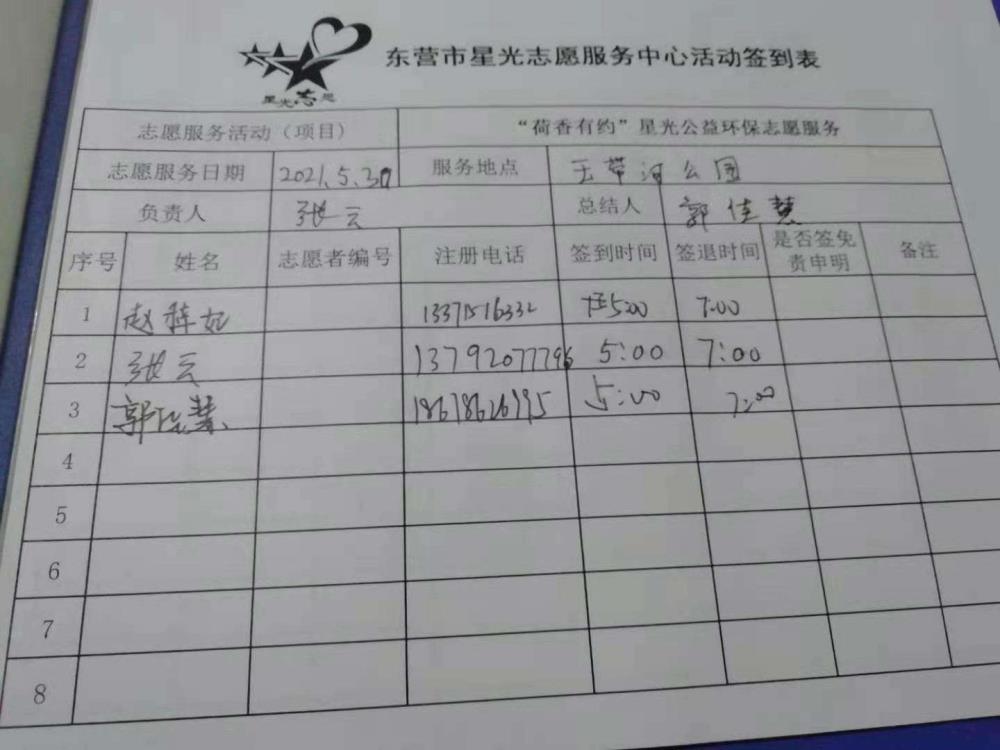 东营市星光志愿服务中心活动签到表
星光志愿
志愿服务活动（项目） “荷香有约”星光公益环保志愿服务
志愿服务日期 2021.5.30 服务地点 玉带河公园
负责人 张云 总结人 郭佳慧
序号 姓名 志愿者编号 注册电话 签到时间 签退时间 是否签免责申明 备注
1 赵 5:00 7:00
2 张云 13792077796 5:00 7:00
3 郭佳慧 5:00 7:00
4
5
6
7
8